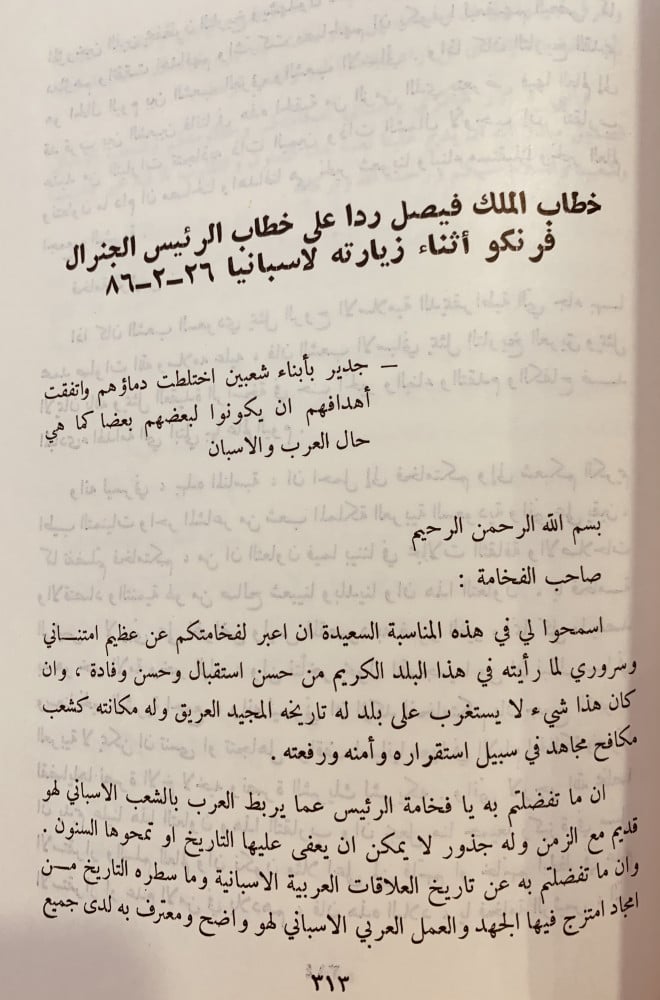 خطاب الملك فيصل ردا على خطاب الرئيس الجنرال
فرنكو أثناء زيارته لاسبانيا ٢٦-٢-٨٦
— جدير بأبناء شعبين اختلطت دماؤهم واتفقت
أهدافهم ان يكونوا لبعضهم بعضا كما هي
حال العرب والاسبان
بسم الله الرحمن الرحيم
صاحب الفخامة :
اسمحوا لي في هذه المناسبة السعيدة ان اعبر لفخامتكم عن عظيم امتنـــاني
وسروري لما رأيته في هذا البلد الكريم من حسن استقبال وحسن وفادة ، وان
كان هذا شيء لا يستغرب على بلد له تاريخه المجيد العريق وله مكانته كشعب
مكافح مجاهد في سبيل استقراره وأمنه ورفعته .
ان ما تفضلتم به يا فخامة الرئيس عما يربط العرب بالشعب الاسباني لهو
قديم مع الزمن وله جذور لا يمكن ان يعفى عليها التاريخ او تمحوها السنون .
وان ما تفضلتم به عن تاريخ العلاقات العربية الاسبانية وما سطره التاريخ مـــن
امجاد امتزج فيها الجهد والعمل العربي الاسباني لهو واضح ومعترف به لدى جميع
٣١٣